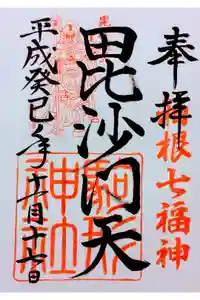 奉拝
箱根七福神
毘沙門天
駒形神社
平成癸巳年十一月十七日